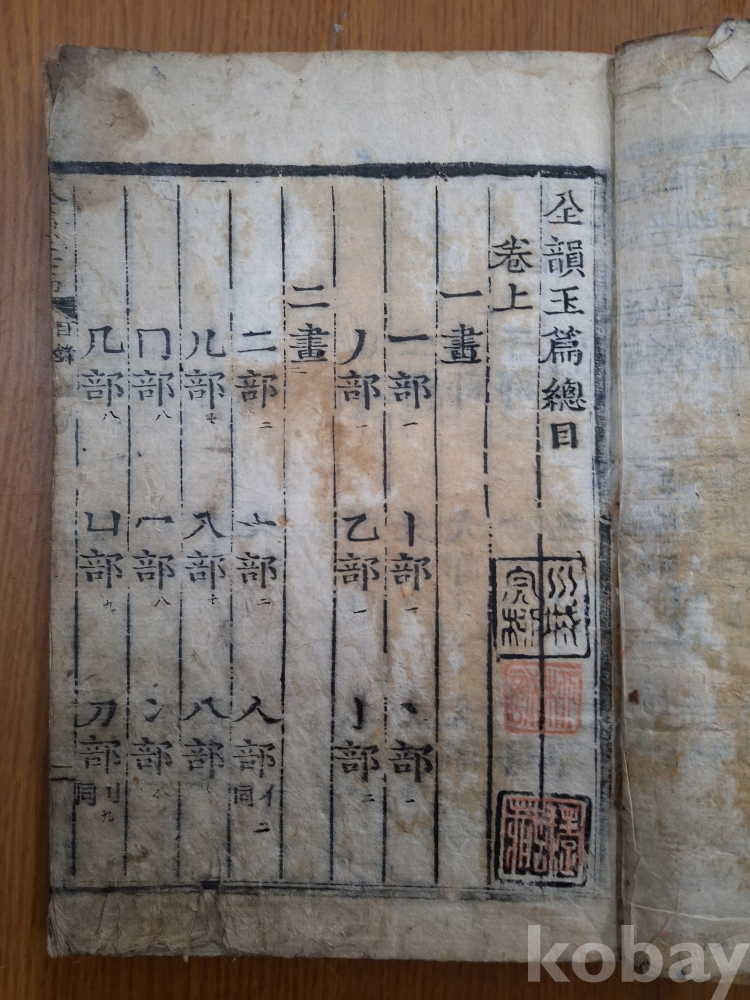 全韻玉篇總目
卷上
一畫
一部 一 丨部 一 丶部 一
丿部 一 乙部 一 亅部 二
二畫
二部 二 亠部 二 人部 亻同 二
儿部 七 入部 七 八部
冂部 八 冖部 八 冫部
几部 八 凵部 九 刀部 刂同 九
目錄
kobay